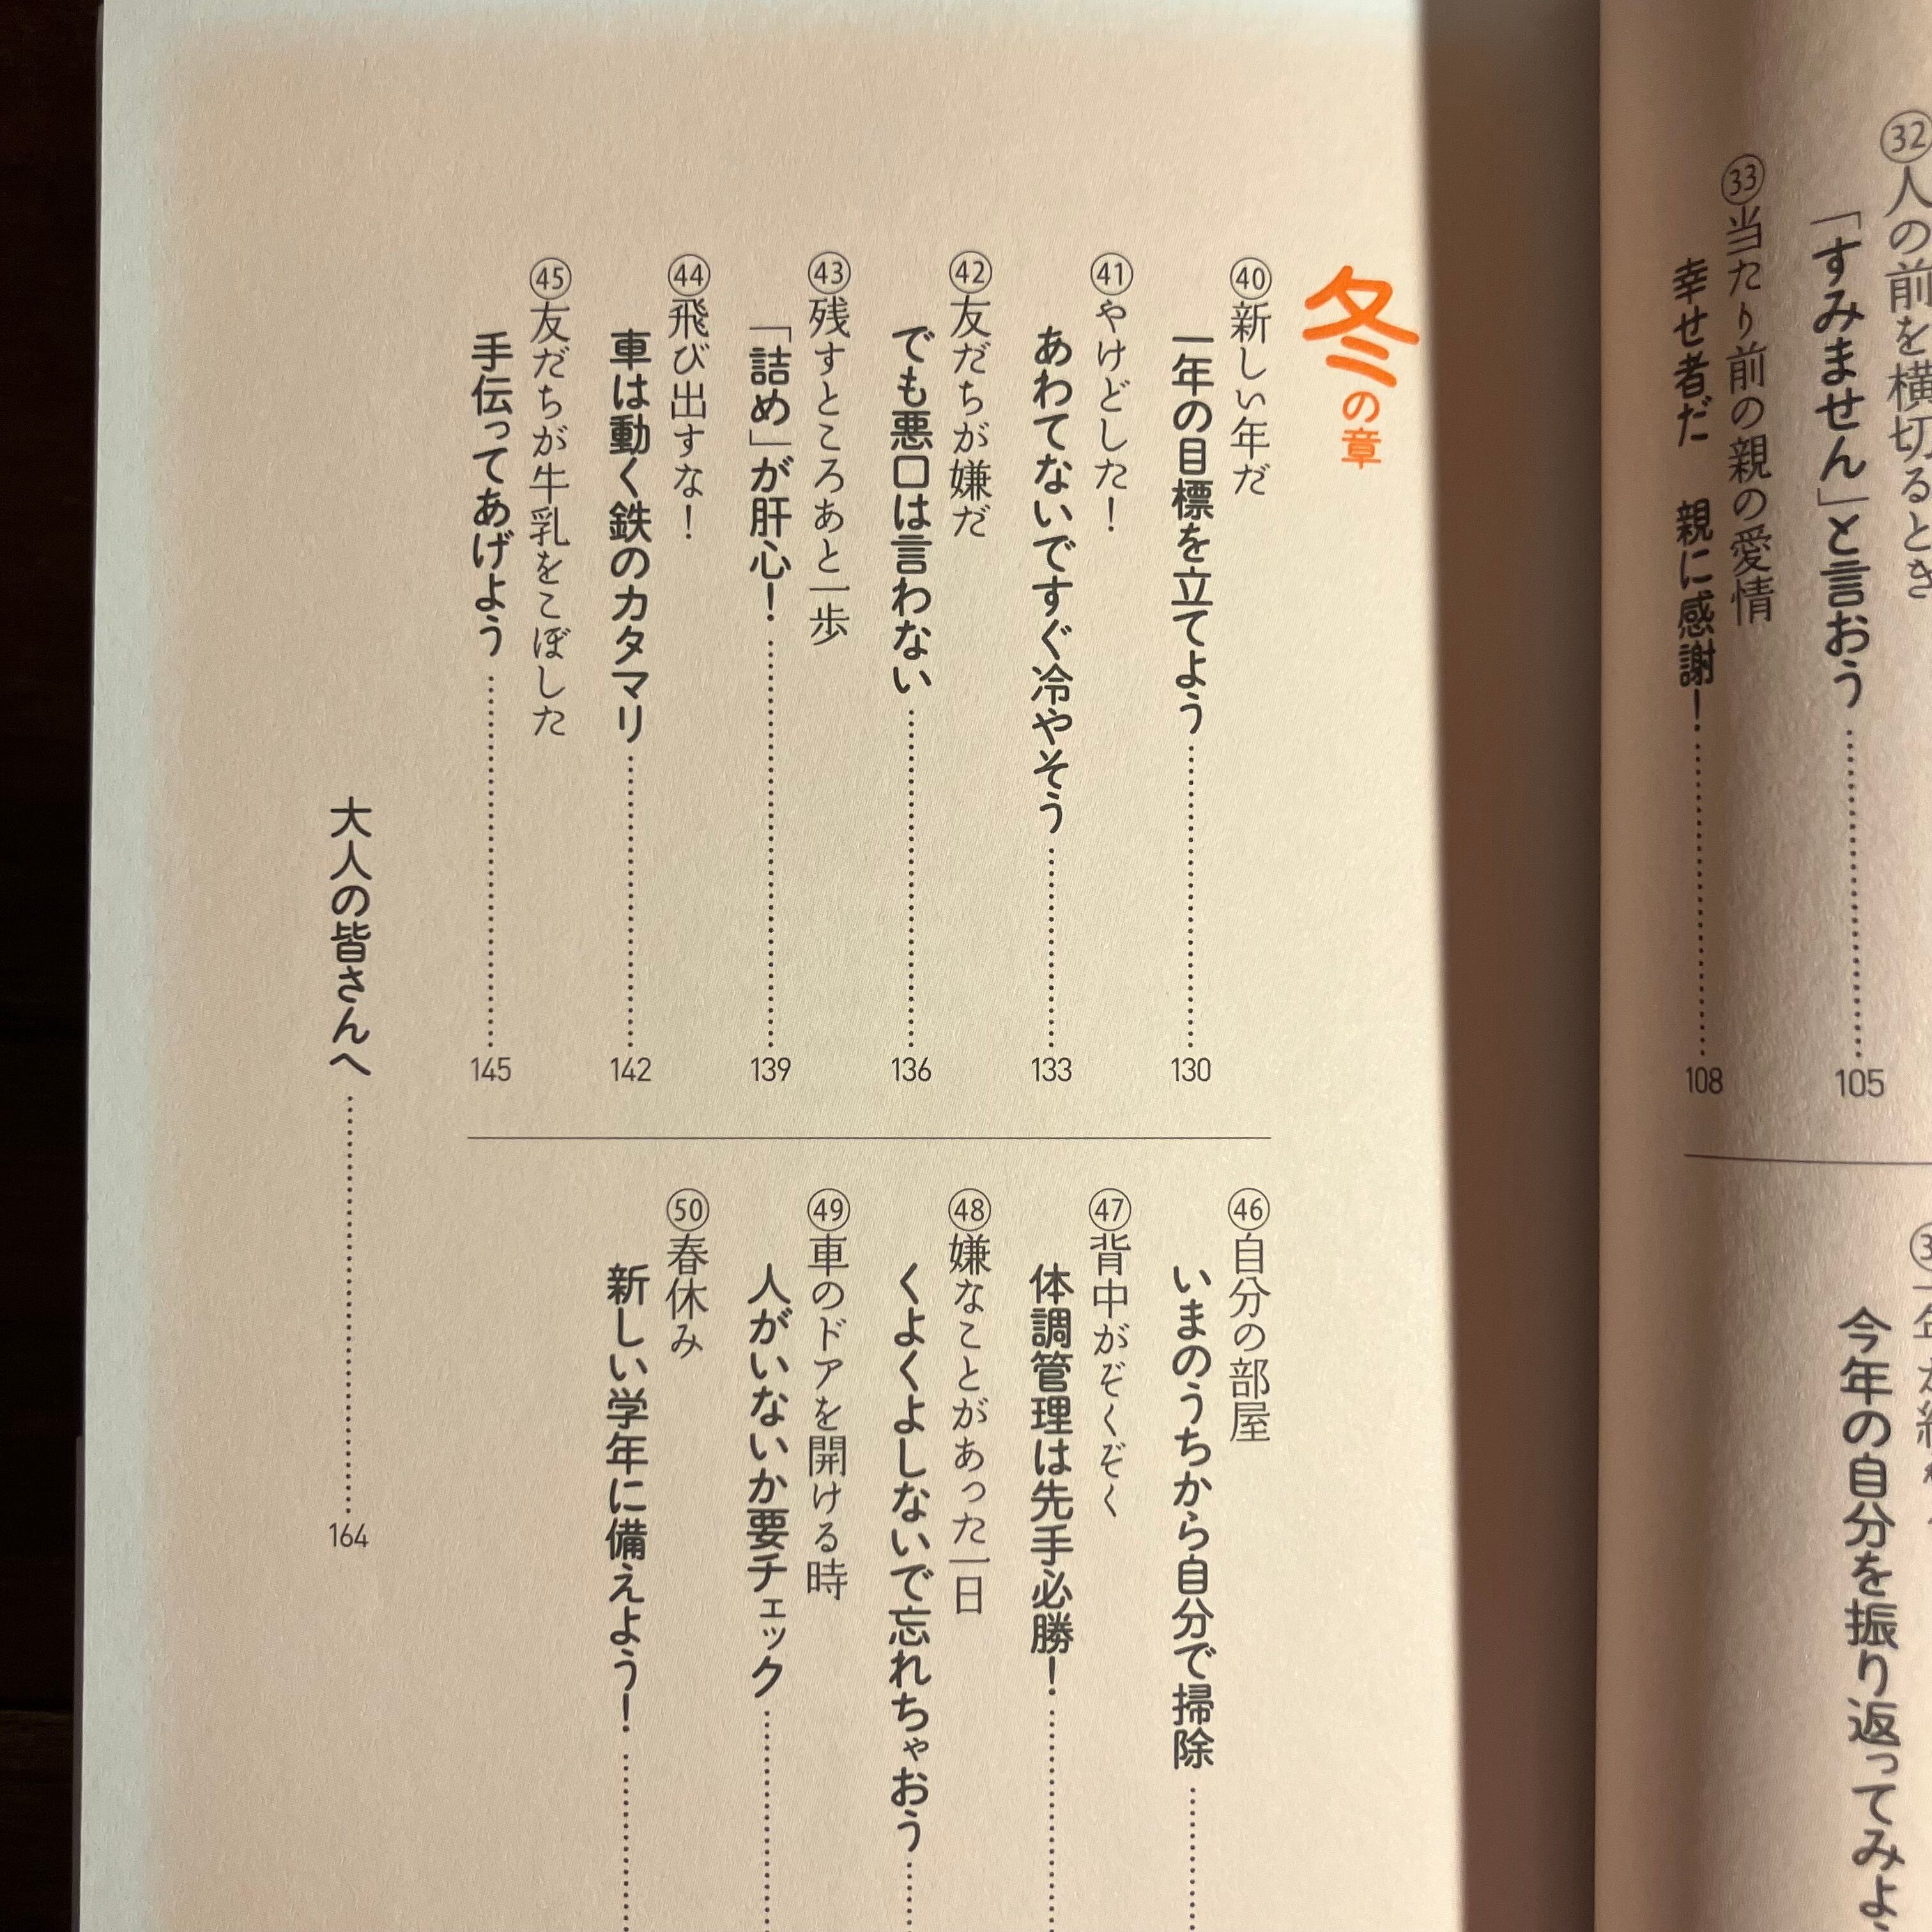 ㉜人の前を横切るとき
「すみません」と言おう………105
㉝当たり前の親の愛情
幸せ者だ　親に感謝！………108
今年の自分を振り返ってみよ
冬の章
㊵新しい年だ
一年の目標を立てよう………130
㊶やけどした！
あわてないですぐ冷やそう………133
㊷友だちが嫌だ
でも悪口は言わない………136
㊸残すところあと一歩
「詰め」が肝心！………139
㊹飛び出すな！
車は動く鉄のカタマリ………142
㊺友だちが牛乳をこぼした
手伝ってあげよう………145
㊻自分の部屋
いまのうちから自分で掃除………
㊼背中がぞくぞく
体調管理は先手必勝！………
㊽嫌なことがあった一日
くよくよしないで忘れちゃおう………
㊾車のドアを開ける時
人がいないか要チェック………
㊿春休み
新しい学年に備えよう！………
大人の皆さんへ………164